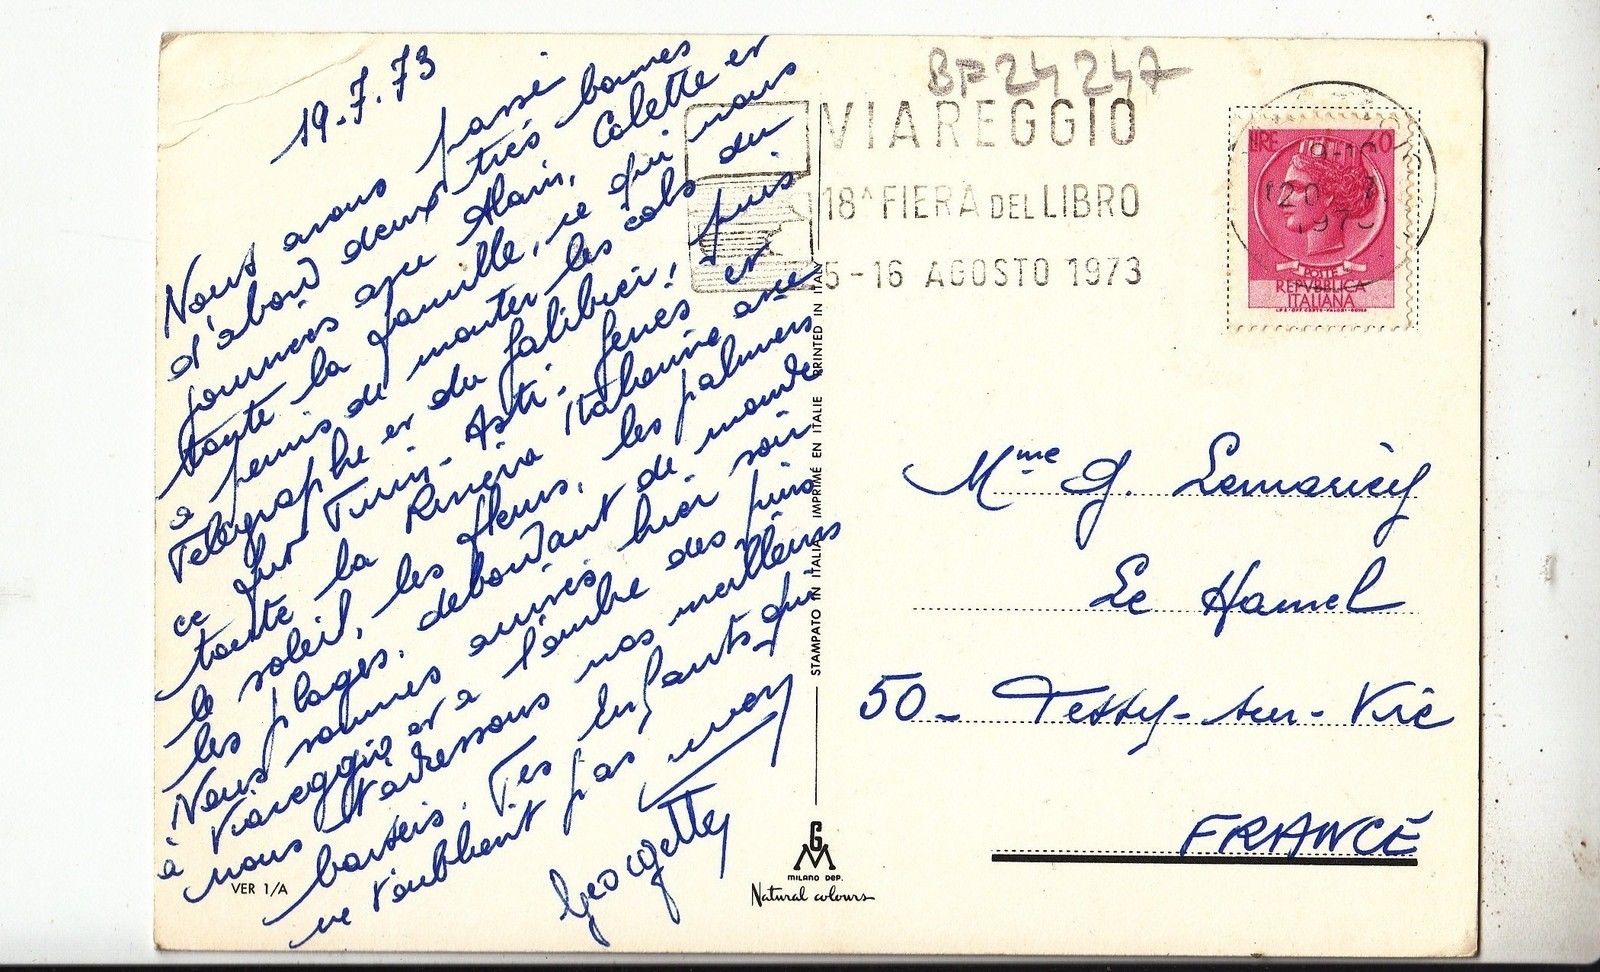 19-7-73
Nous avons passé
d'abord deux très bonnes
journées avec Alain, Colette et
toute la famille, ce qui nous
a permis de monter les cols du
Télégraphe et du Galibier, puis
ce fut Turin - Asti - Gênes et
toute la Riviera Italienne avec
le soleil, les fleurs, les palmiers
les plages, débordant de monde
Nous sommes arrivés hier soir
à Viareggio et à l'ombre des pins
nous t'adressons nos meilleurs
baisers. Tes Enfants qui
ne t'oublient pas
Georgette
BF24247
VIAREGGIO
18^ FIERA DEL LIBRO
5-16 AGOSTO 1973
LIRE 60
POSTE
REPVBBLICA
ITALIANA
STAMPATO IN ITALIA IMPRIMÉ EN ITALIE PRINTED IN ITALY
Mme G. Lemaricey
Le Hamel
50 - Tessy-sur-Vire
FRANCE
VER 1/A
GM
MILANO DEP.
Natural colours